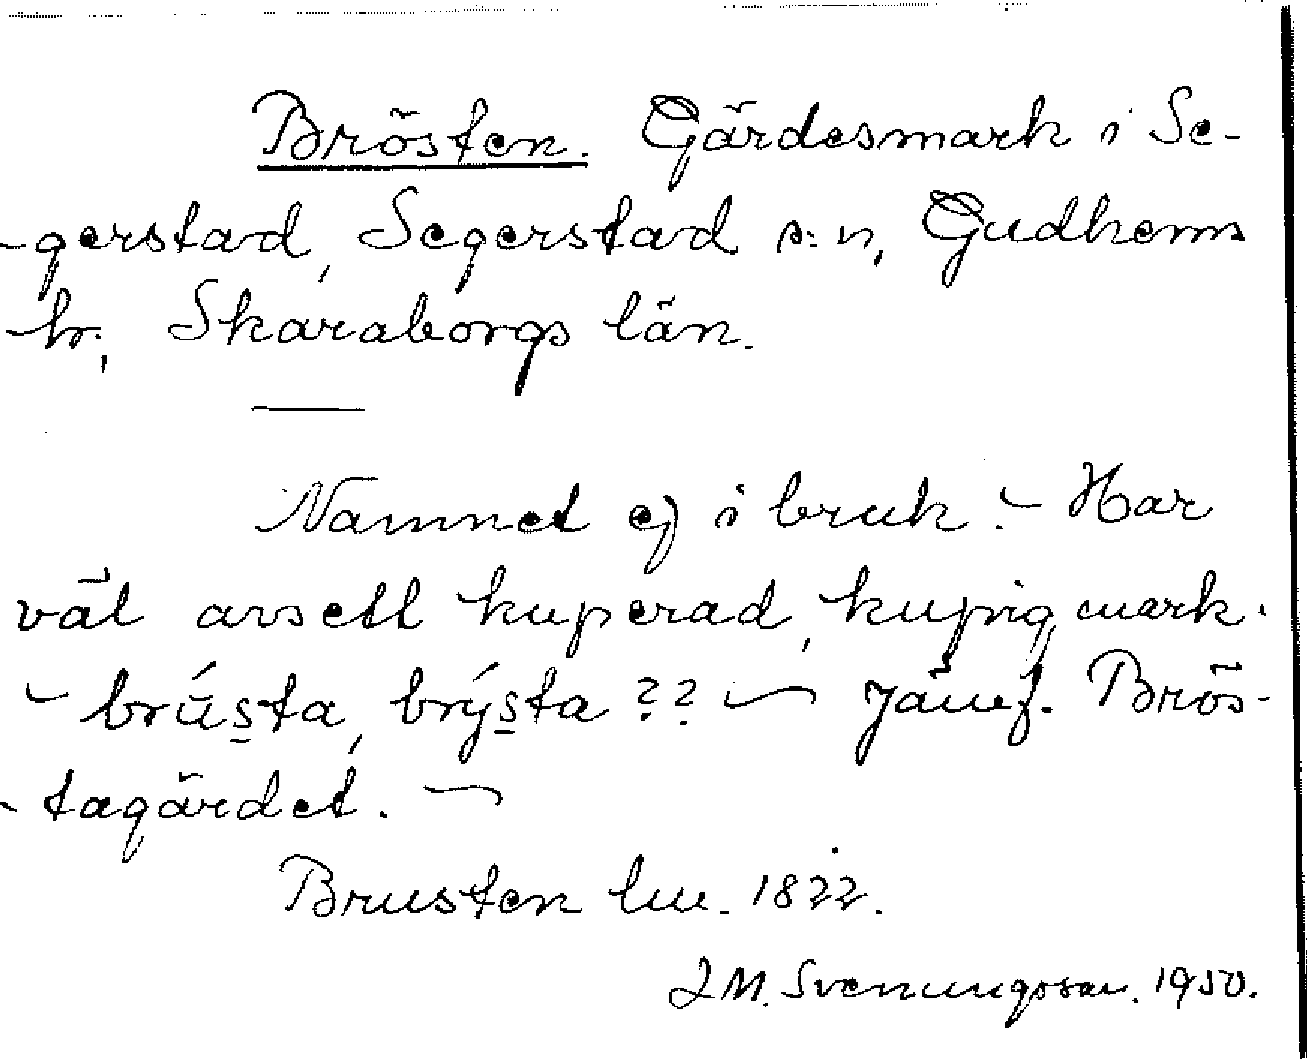 Brösten. Gärdesmark i Se-
-gerstad, Segerstad s:n, Gudhems
hr; Skaraborgs län.
Namnet ej i bruk. - Har
väl avsett kuperad, kupig mark.
- brú̄s̱ta, brýs̱ta ?? - Jämf. Brös-
- tagärdet. -
Brusten lm. 1822.
J M. Svenungsson. 1950.